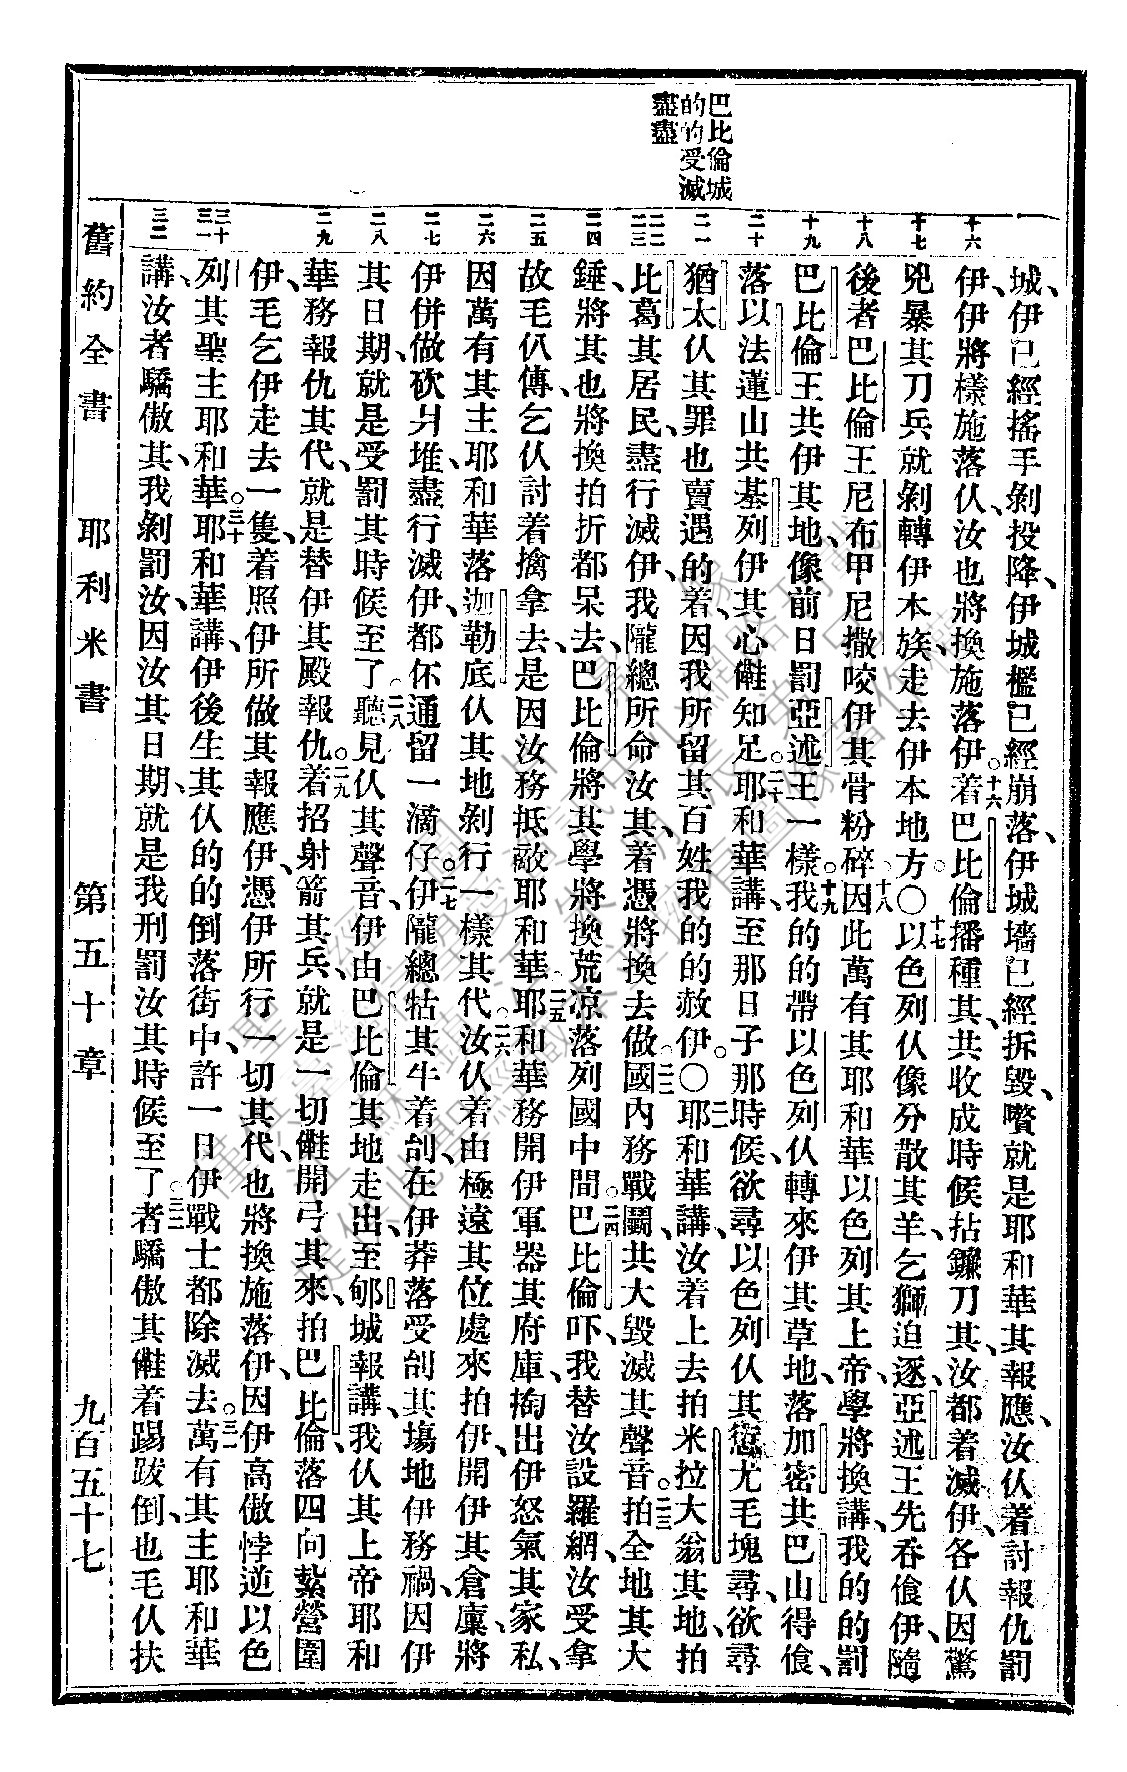 巴比倫城
的的受滅
盡盡
城、伊已經搖手剝投降、伊城檻已經崩落、伊城墻已經拆毀、嚽就是耶和華其報應、汝仈著討報仇罰
伊、伊將樣施落仈、汝也將換施落伊。十六伊着巴比倫播種其、共收成時候拈鐮刀其、汝都着滅伊、各仈因驚
兇暴其刀兵就剝轉伊本族、走去伊本地方。〇十七以色列仈像分散其羊、乞獅迫逐、亞述王先吞飡伊、隨
後者巴比倫王尼布甲尼撒咬伊其骨粉碎、十八因此萬有其耶和華以色列其上帝、學將換講、我的的罰
巴比倫王共伊其地、像前日罰亞述王一樣。十九我的的帶以色列仈轉來伊其草地、落加密共巴山得飡、
落以法蓮山共基列伊其心儺知足。二十耶和華講、至那日子那時候、欲尋以色列仈其愆尤毛塊尋、欲尋
猶太仈其罪也賣遇的着、因我所留其百姓我的的赦伊。〇二一耶和華講、汝着上去拍米拉大翁其地、拍
比葛其居民、盡行滅伊、我隴總所命汝其、着憑將換去做。二二國內務戰鬭、共大毀滅其聲音。二三拍全地其大
錘、將其也將換拍折都呆去、巴比倫將其學將換荒涼落列國中間。二四巴比倫吓、我替汝設羅網、汝受拿
故毛仈傳、乞仈討着擒拿去、是因汝務抵敵耶和華。二五耶和華務開伊軍器其府庫、掏出伊怒氣其家私、
因萬有其主、耶和華落迦勒底仈其地剝行一樣其代。二六汝仈着由極遠其位處來拍伊、開伊其倉廩、將
伊併做砍爿堆、盡行滅伊、都伓通留一滴仔。二七伊隴總牯其牛着刣、在伊莽落受刣其塲地、伊務禍、因伊
其日期、就是受罰其時候至了。二八聽見仈其聲音、伊由巴比倫其地走出、至郇城報講、我仈其上帝耶和
華、務報仇其代、就是替伊其殿報仇。二九着招射箭其兵、就是一切儺開弓其來、拍巴比倫、落四向紮營圍
伊、毛乞伊走去一隻、着照伊所做其報應伊、憑伊所行一切其代、也將換施落伊、因伊高傲悖逆以色
列其聖主耶和華。三十耶和華講、伊後生其仈的的倒落街中、許一日伊戰士都除滅去。三一萬有其主耶和華
講、汝者驕傲其、我剝罰汝、因汝其日期、就是我刑罰汝其時候至了。三二者驕傲其儺着踢跋倒、也毛仈扶
十六
十七
十八
十九
二十
二一
二二
二三
二四
二五
二六
二七
二八
二九
三十
三一
三二
舊約全書　耶利米書　第五十章　九百五十七